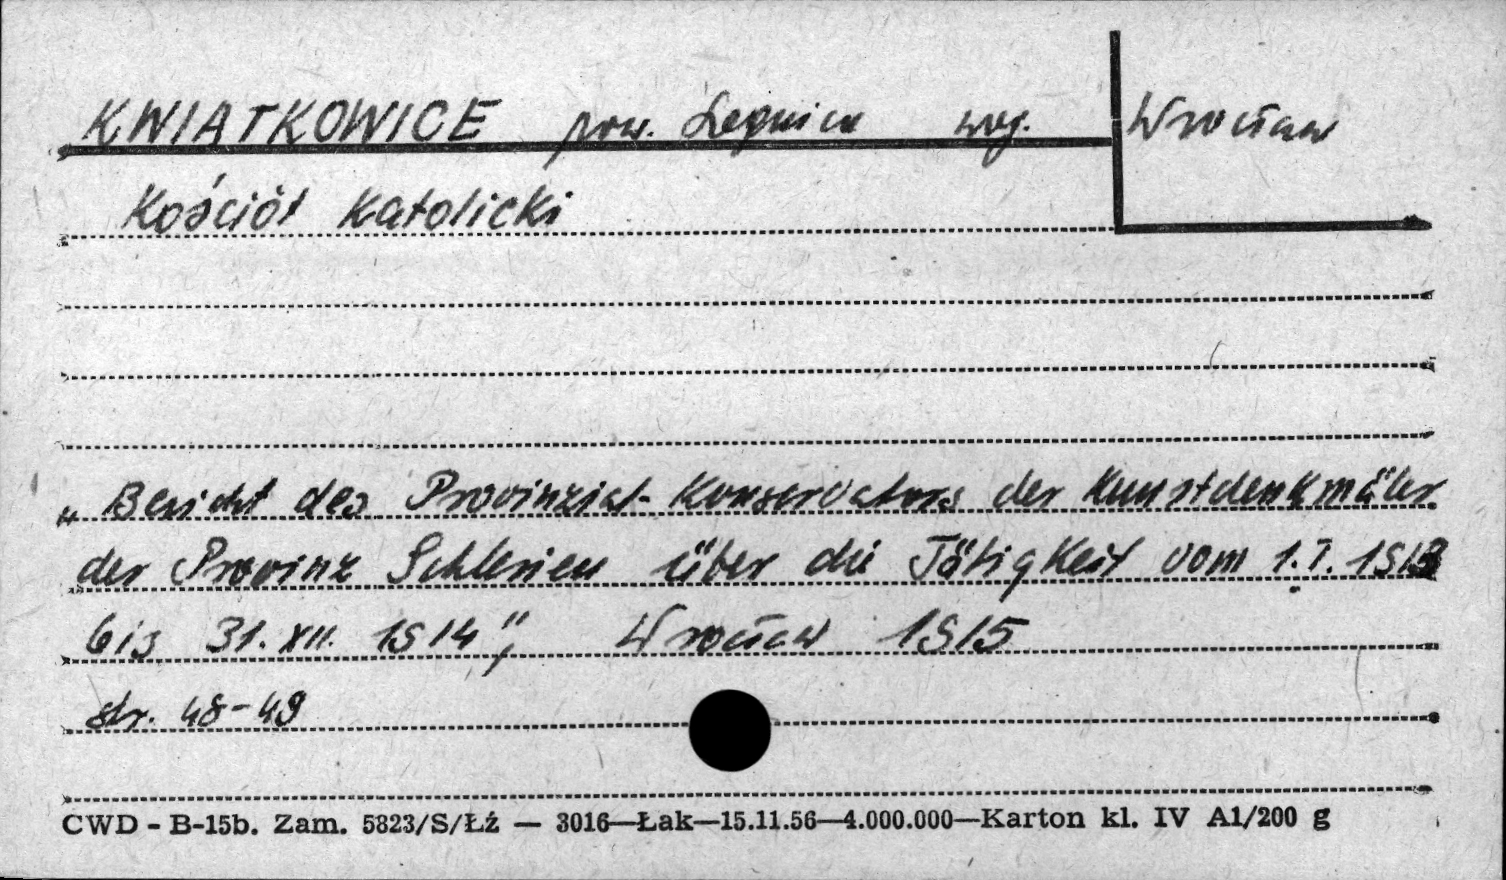 KWIATKOWICE pow. Legnica woj. Wrocław
Kościół Katolicki
„Bericht des Provinzial-Konservators der Kunstdenkmäler
der Provinz Schlesien über die Tätigkeit vom 1.I. 1913
bis 31.XII. 1914", Wrocław 1915
str. 48-49
CWD - B-15b. Zam. 5823/S/Łź — 3016—Łak—15.11.56—4.000.000—Karton kl. IV A1/200 g